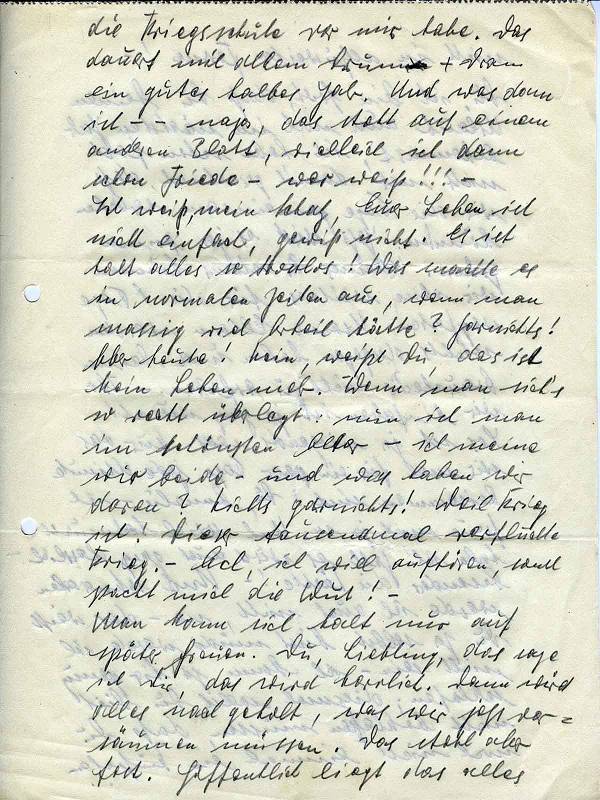 die Kriegsschule vor mir habe. Das
dauert mit allem Drum + Dran
ein gutes halbes Jahr. Und was dann
ist - - naja, das steht auf einem
anderen Blatt, vielleicht ist dann
schon Friede - wer weiß!!! -
Ich weiß, mein Schatz, Euer Leben ist
nicht einfach, gewiß nicht. Es ist
halt alles so trostlos! Was machte es
in normalen Zeiten aus, wenn man
massig viel Arbeit hätte? Garnichts!
Aber heute! Nein, weißt Du, das ist
kein Leben mehr. Wenn man sich's
so recht überlegt: nun ist man
im schönsten Alter - ich meine
wir beide - und was haben wir
davon? Nichts, garnichts! Weil Krieg
ist! Dieser tausendmal verfluchte
Krieg. - Ach, ich will aufhören, sonst
packt mich die Wut! -
Man kann sich halt nur auf
später freuen. Du, Liebling, das sage
ich Dir, das wird herrlich. Dann wird
alles nachgeholt, was wir jetzt ver=
säumen müssen. Das steht aber
fest. Hoffentlich liegt das alles